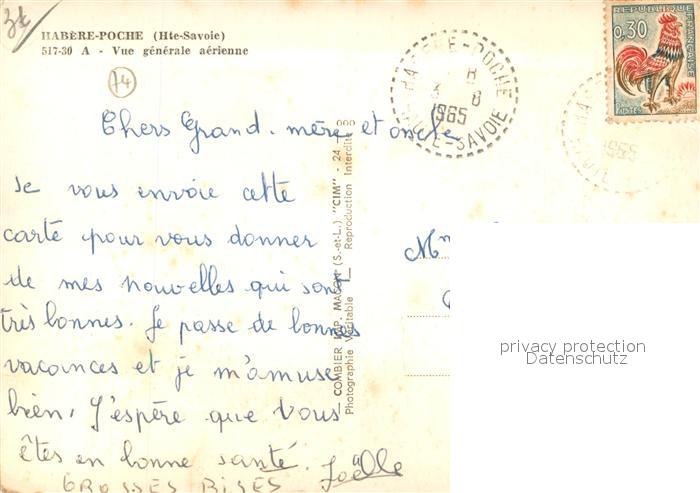 3€
HABÈRE-POCHE (Hte-Savoie)
517-30 A - Vue générale aérienne
74
HABERE-POCHE
8
1965
HAUTE-SAVOIE
REPUBLIQUE FRANÇAISE
0,30
POSTES
1965
Chers Grand-mère et oncle
Je vous envoie cette
carte pour vous donner
de mes nouvelles qui sont
très bonnes. Je passe de bonnes
vacances et je m'amuse
bien. J'espère que vous
êtes en bonne santé. Joëlle
GROSSES BISES
COMBIER IMP. MACON (S.-et-L.) "CIM" - 24
Photographie Véritable - Reproduction Interdite
privacy protection
Datenschutz